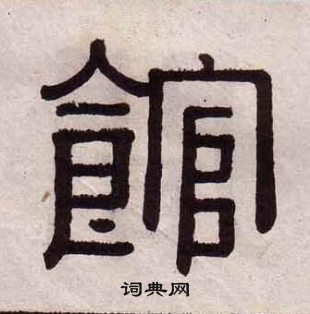 館
词典网